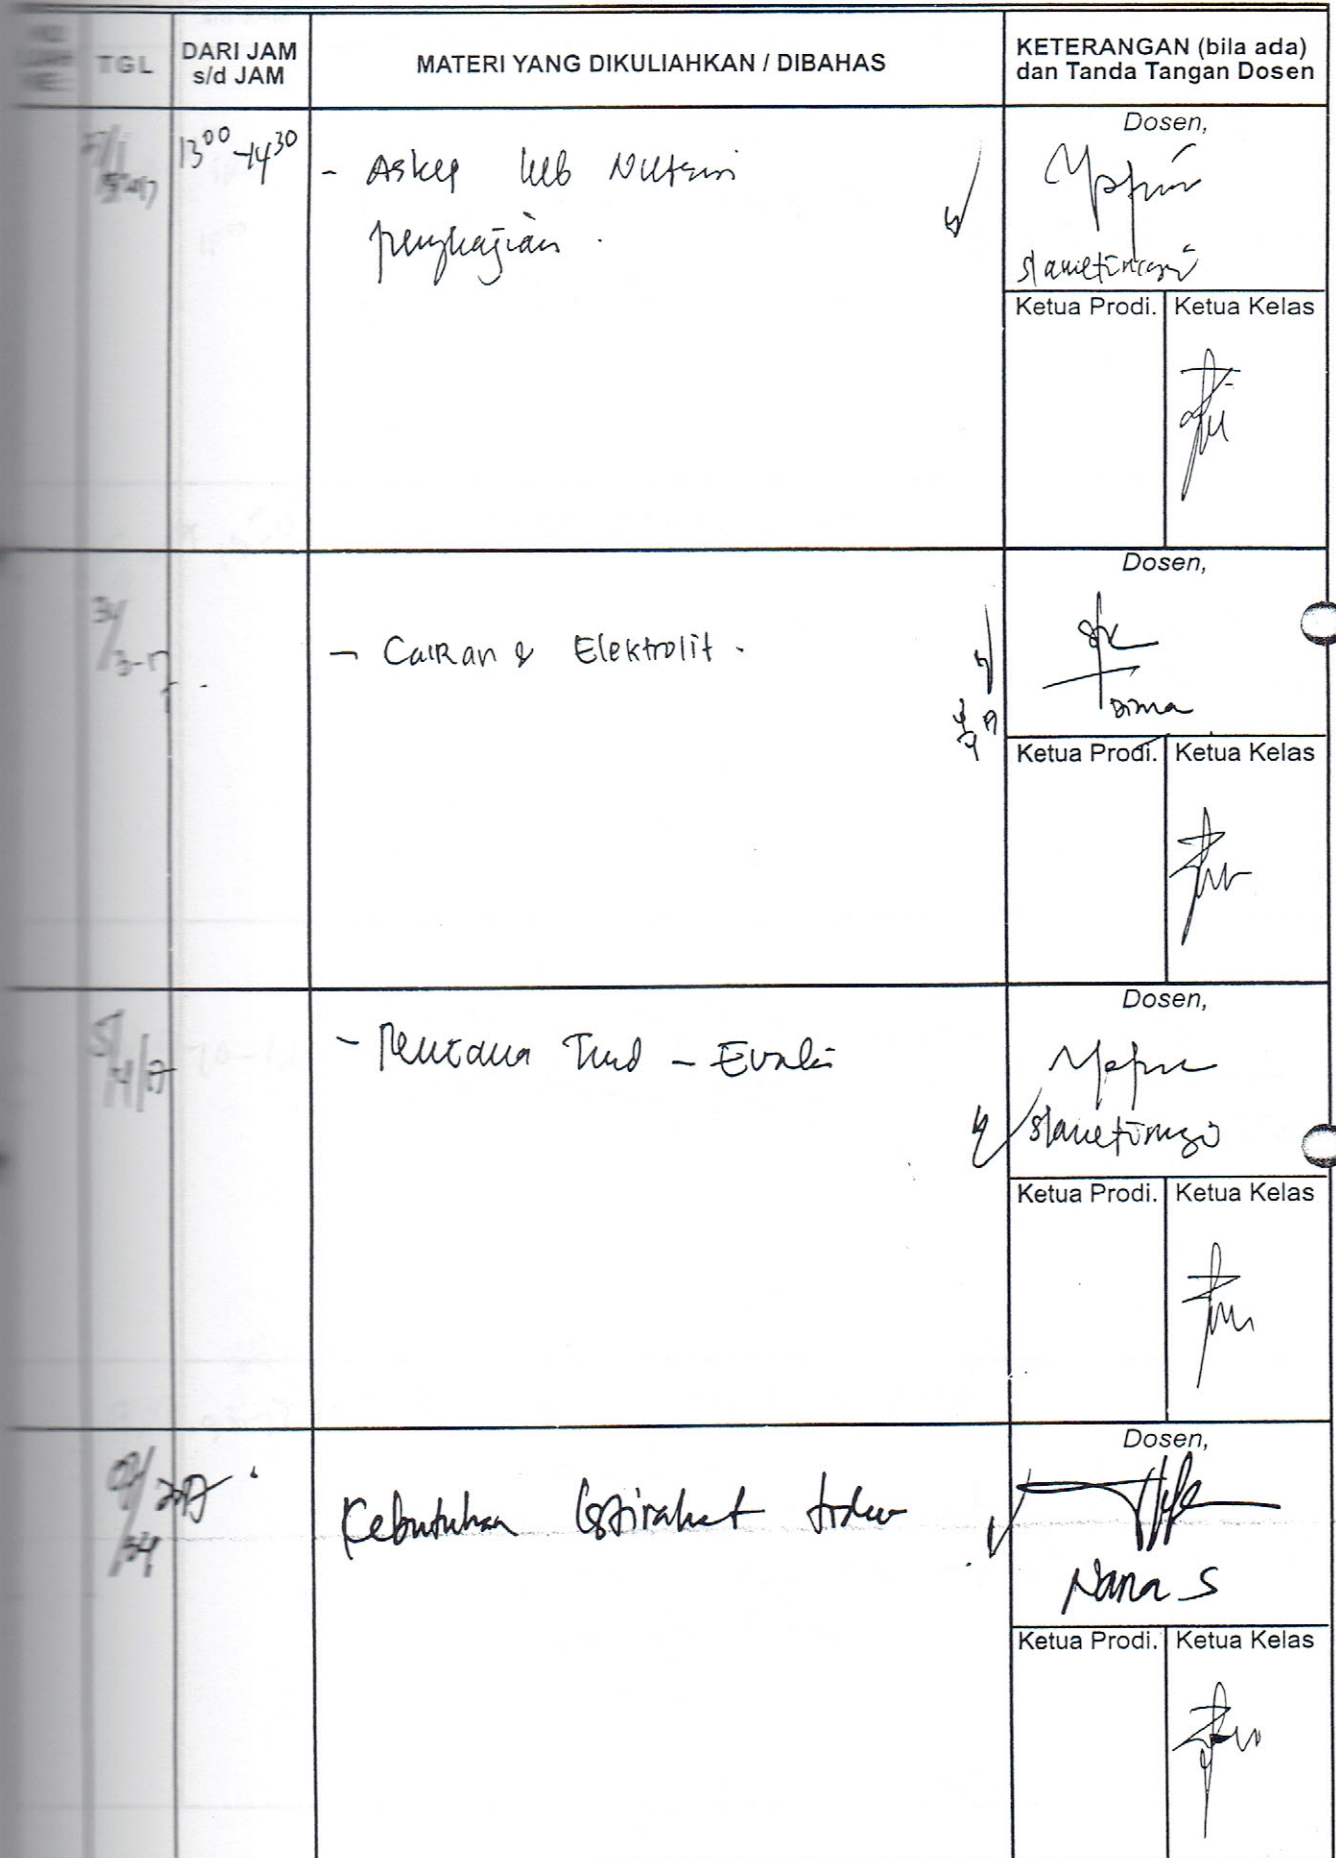 TGL
DARI JAM
s/d JAM
MATERI YANG DIKULIAHKAN / DIBAHAS
KETERANGAN (bila ada)
dan Tanda Tangan Dosen
13⁰⁰ - 14³⁰
- Askep keb Nutrisi
pengkajian.
Dosen,
Ketua Prodi.
Ketua Kelas
- Cairan & Elektrolit.
Dosen,
Dima
Ketua Prodi.
Ketua Kelas
- Rencana Tind - Evalu
Dosen,
Ketua Prodi.
Ketua Kelas
Kebutuhan Istirahat tidur
Dosen,
Nana S
Ketua Prodi.
Ketua Kelas